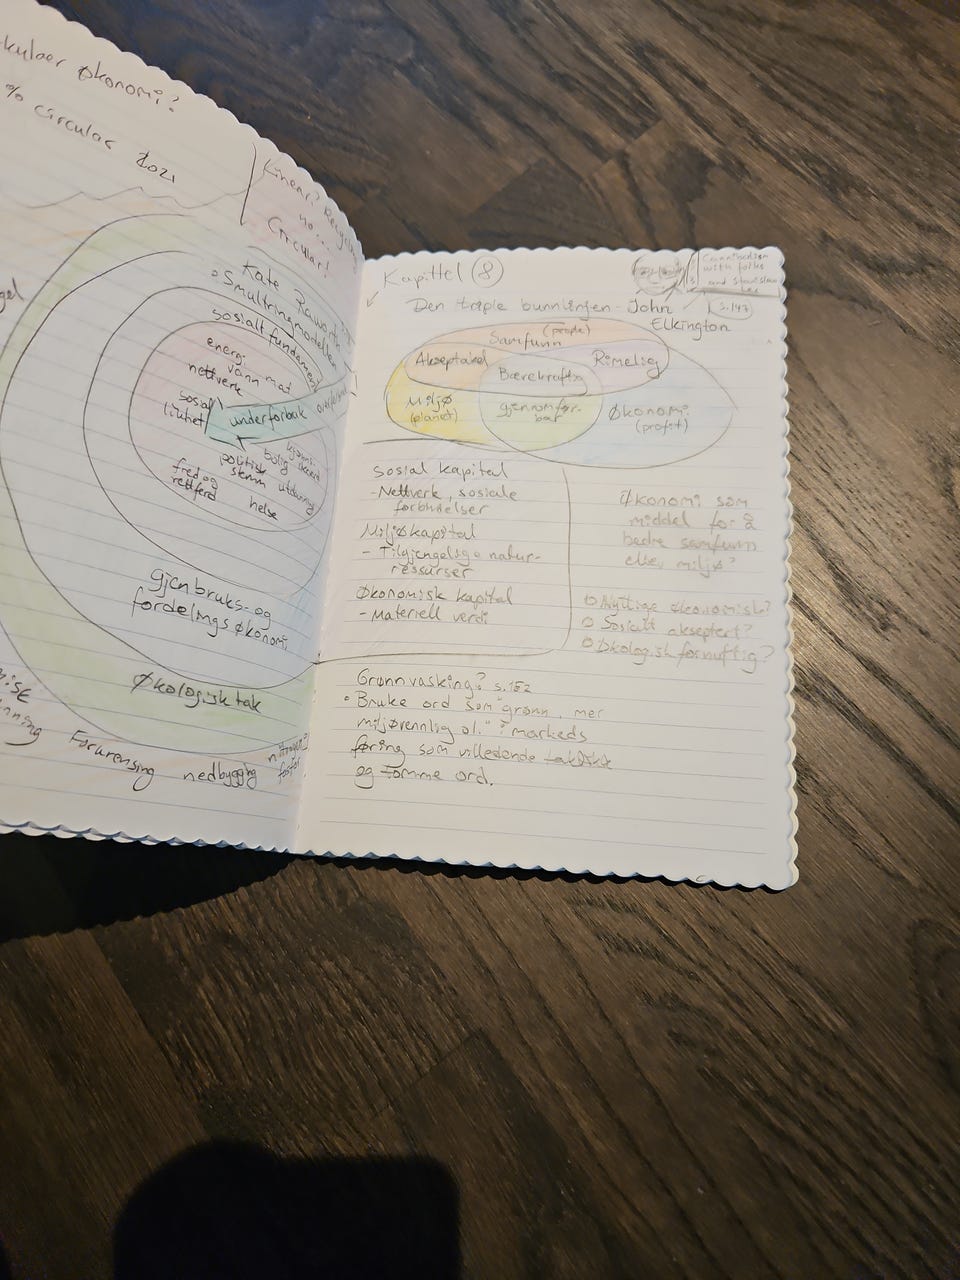 økonomi?
% circular 2021
Linear? Recycle
no...
Circular!
Kate Raworth
Smultringmodellen
sosialt fundament
energi
vann mat
nettverk
sosial
likhet
underforbruk
politisk
stemm
bolig
utdanning
fred og
rettferd
helse
gjenbruks- og
fordelingsøkonomi
Økologisk tak
Forurensing nedbygging
Kapittel 8
Cannibalism
with forks
s. 147
Den triple bunnlinjen - John
Elkington
(people)
Samfunn
Akseptabel
Rimelig
Bærekraftig
Miljø
(planet)
gjennomfør-
bar
Økonomi
(profit)
Sosial kapital
- Nettverk, sosiale
forbindelser
Miljøkapital
- Tilgjengelige natur-
ressurser
Økonomisk kapital
- Materiell verdi
Økonomi som
middel for å
bedre samfunn
eller miljø?
Nyttige økonomisk?
Sosialt akseptert?
Økologisk fornuftig?
Grønnvasking? s.152
• Bruke ord som "grønn, mer
miljøvennlig ol." i markeds
føring som villedende taktikk
og tomme ord.